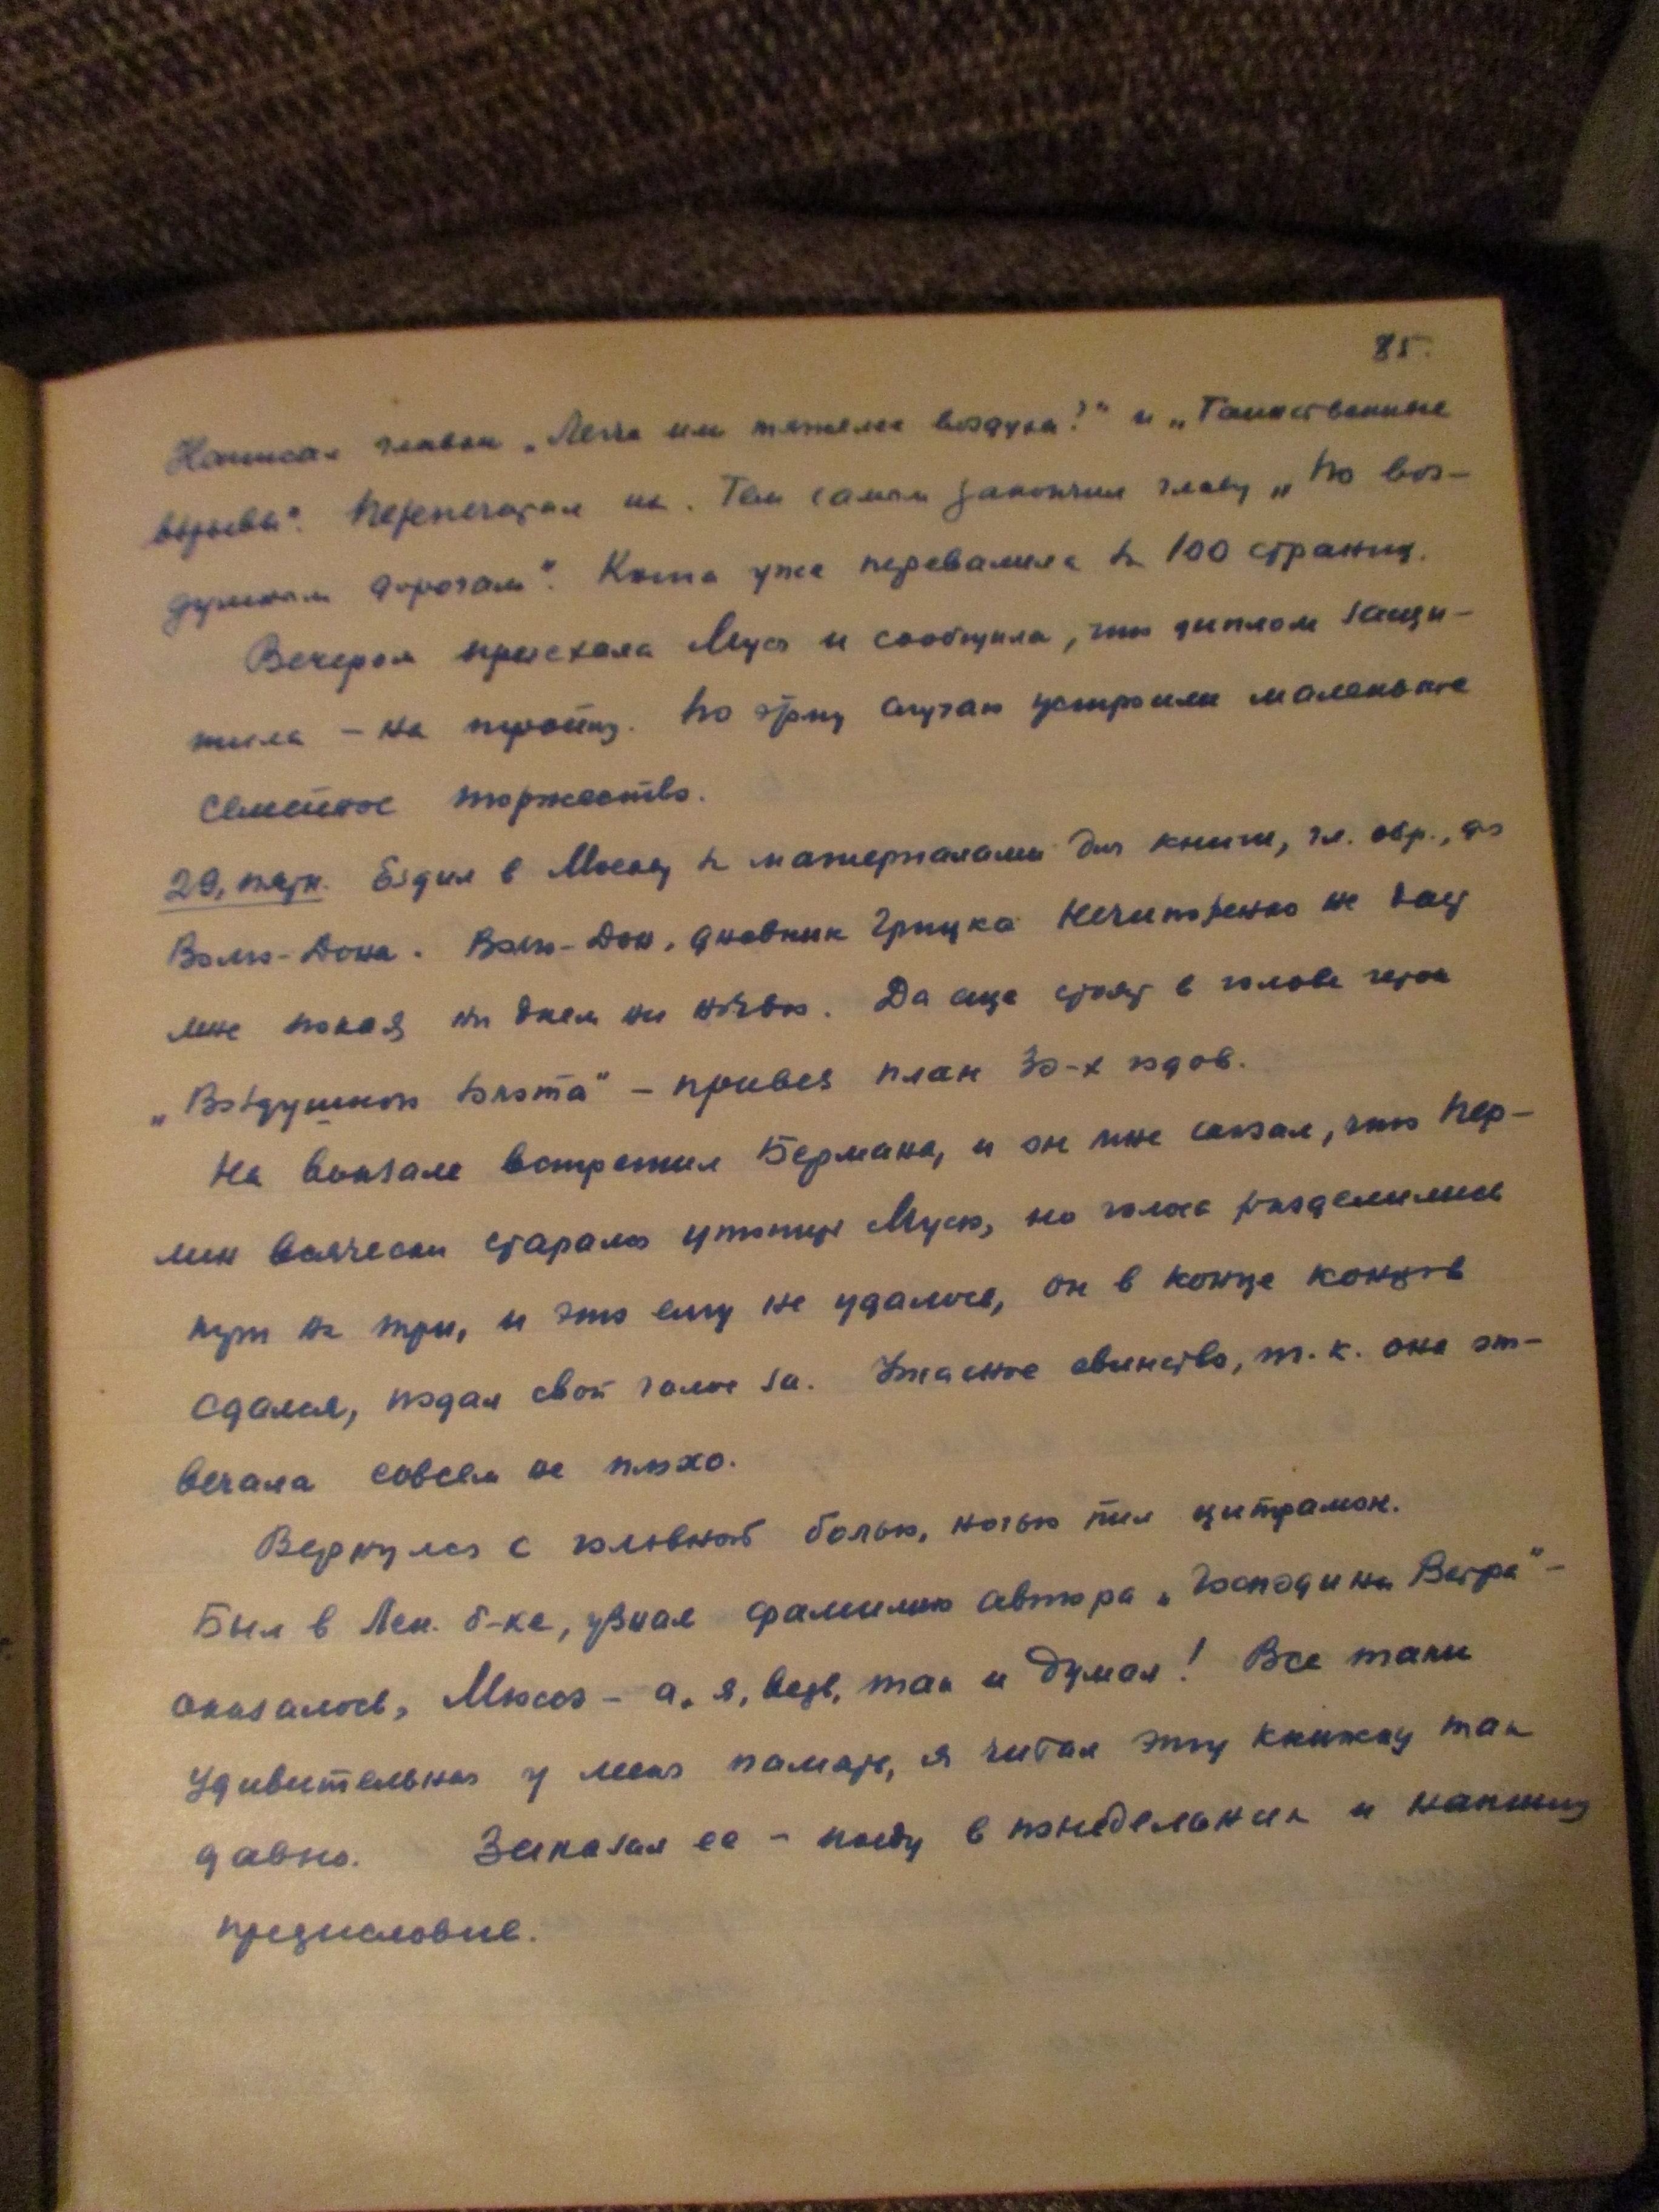 85.
Написал главки „Легче или тяжелее воздуха?" и „Таинственные
взрывы". Перепечатал их. Тем самым закончил главу „По воз-
душным дорогам". Книга уже перевалила за 100 страниц.
Вечером приехала Муся и сообщила, что диплом защи-
тила – на тройку. По этому случаю устроили маленькое
семейное торжество.
29, пятн. Ездил в Москву за материалами для книги, гл. обр., до
Волго-Дона. Волго-Дон, дневник Грицка Нечипоренко не дает
мне покоя ни днем ни ночью. Да еще стоят в голове герои
„Воздушного болота" – привез план 30-х годов.
На вокзале встретил Бермана, и он мне сказал, что Пер-
лин всячески старался утопить Мусю, но голоса разделились
три на три, и это ему не удалось, он в конце концов
сдался, подал свой голос за. Ужасное свинство, т.к. она от-
вечала совсем не плохо.
Вернулся с головной болью, ночью пил цитрамон.
Был в Лен. б-ке, узнал фамилию автора „Господина Ветра" –
оказалось, Мюссэ – а, я, ведь, так и думал! Все таки
удивительная у меня память, я читал эту книжку так
давно. Заказал ее – поеду в понедельник и напишу
предисловие.